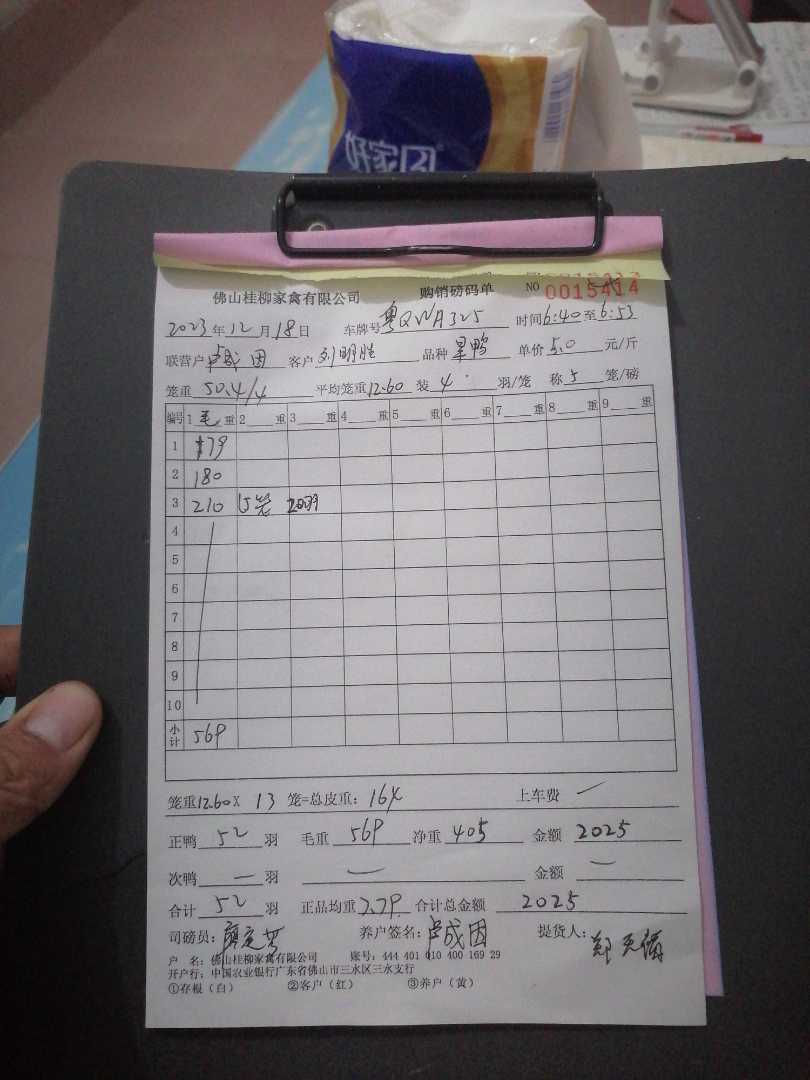 好家
佛山桂柳家禽有限公司 购销磅码单 NO 0015414
2023年12月18日 车牌号粤QWA325 时间6:40至6:53
联营户卢成因 客户刘明胜 品种 单价5.0元/斤
笼重50.4/4 平均笼重12.60 装4羽/笼 称5笼/磅
编号 1毛重 2 重 3 重 4 重 5 重 6 重 7 重 8 重 9 重
1 179
2 180
3 210 (5笼 20羽
4
5
6
7
8
9
10
小计 569
笼重12.60X 13 笼=总皮重：164 上车费 一
正鸭 52 羽 毛重 569 净重 405 金额 2025
次鸭 一 羽 一 金额 一
合计 52 羽 正品均重7.79 合计总金额 2025
司磅员：廖定芳 养户签名：卢成因 提货人：郑
户 名：佛山桂柳家禽有限公司 账号：444 401 010 400 169 29
开户行：中国农业银行广东省佛山市三水区三水支行
①存根（白） ②客户（红） ③养户（黄）